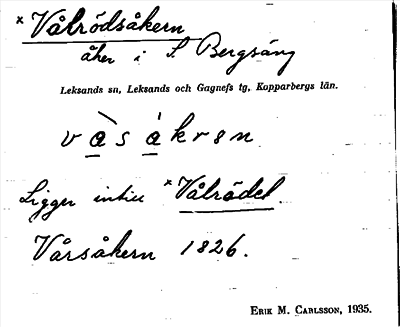 x Vålrödsåkern
åker i S. Bergsäng
Leksands sn, Leksands och Gagnefs tg, Kopparbergs län.
v à s á k r ə n
Ligger intill x Vålrödet.
Vårsåkern 1826.
ERIK M. CARLSSON, 1935.